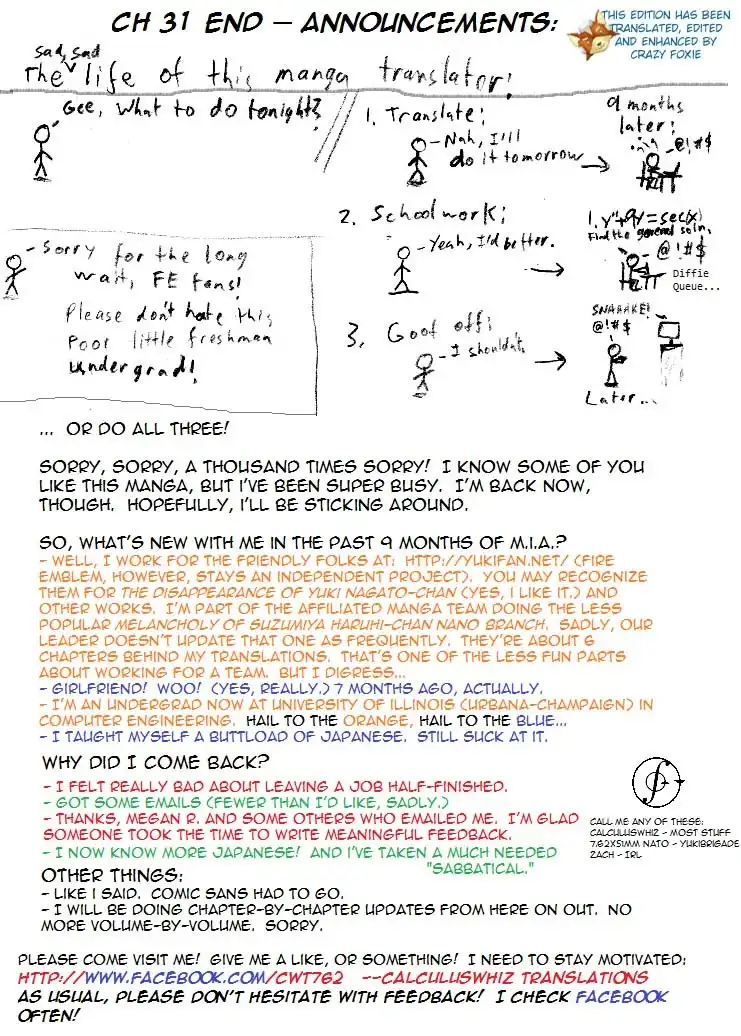 CH 31 END – ANNOUNCEMENTS:
THIS EDITION HAS BEEN
TRANSLATED, EDITED
AND ENHANCED BY
CRAZY FOXIE
sad, sad
The life of this manga translator:
Gee, What to do tonight?
1. Translate:
-Nah, I'll
do it tomorrow
9 months
later:
@!#$
2. Schoolwork:
-Yeah, I'd better.
1. y"+9y=sec(x)
Find the general soln.
@!#$
Diffie
Queue...
3. Goof off:
-I shouldn't.
SNAAAKE!
@!#$
Later...
-Sorry for the long
wait, FE fans!
Please don't hate this
poor little freshman
undergrad!
... OR DO ALL THREE!
SORRY, SORRY, A THOUSAND TIMES SORRY! I KNOW SOME OF YOU
LIKE THIS MANGA, BUT I'VE BEEN SUPER BUSY. I'M BACK NOW,
THOUGH. HOPEFULLY, I'LL BE STICKING AROUND.
SO, WHAT'S NEW WITH ME IN THE PAST 9 MONTHS OF M.I.A.?
- WELL, I WORK FOR THE FRIENDLY FOLKS AT: HTTP://YUKIFAN.NET/ (FIRE
EMBLEM, HOWEVER, STAYS AN INDEPENDENT PROJECT). YOU MAY RECOGNIZE
THEM FOR THE DISAPPEARANCE OF YUKI NAGATO-CHAN (YES, I LIKE IT.) AND
OTHER WORKS. I'M PART OF THE AFFILIATED MANGA TEAM DOING THE LESS
POPULAR MELANCHOLY OF SUZUMIYA HARUHI-CHAN NANO BRANCH. SADLY, OUR
LEADER DOESN'T UPDATE THAT ONE AS FREQUENTLY. THEY'RE ABOUT 6
CHAPTERS BEHIND MY TRANSLATIONS. THAT'S ONE OF THE LESS FUN PARTS
ABOUT WORKING FOR A TEAM. BUT I DIGRESS...
- GIRLFRIEND! WOO! (YES, REALLY.) 7 MONTHS AGO, ACTUALLY.
- I'M AN UNDERGRAD NOW AT UNIVERSITY OF ILLINOIS (URBANA-CHAMPAIGN) IN
COMPUTER ENGINEERING. HAIL TO THE ORANGE, HAIL TO THE BLUE...
- I TAUGHT MYSELF A BUTTLOAD OF JAPANESE. STILL SUCK AT IT.
WHY DID I COME BACK?
- I FELT REALLY BAD ABOUT LEAVING A JOB HALF-FINISHED.
- GOT SOME EMAILS (FEWER THAN I'D LIKE, SADLY.)
- THANKS, MEGAN R. AND SOME OTHERS WHO EMAILED ME. I'M GLAD
SOMEONE TOOK THE TIME TO WRITE MEANINGFUL FEEDBACK.
- I NOW KNOW MORE JAPANESE! AND I'VE TAKEN A MUCH NEEDED
"SABBATICAL."
CALL ME ANY OF THESE:
CALCULUSWHIZ - MOST STUFF
7.62X51MM NATO - YUKIBRIGADE
ZACH - IRL
OTHER THINGS:
- LIKE I SAID. COMIC SANS HAD TO GO.
- I WILL BE DOING CHAPTER-BY-CHAPTER UPDATES FROM HERE ON OUT. NO
MORE VOLUME-BY-VOLUME. SORRY.
PLEASE COME VISIT ME! GIVE ME A LIKE, OR SOMETHING! I NEED TO STAY MOTIVATED:
HTTP://WWW.FACEBOOK.COM/CWT762 --CALCULUSWHIZ TRANSLATIONS
AS USUAL, PLEASE DON'T HESITATE WITH FEEDBACK! I CHECK FACEBOOK
OFTEN!